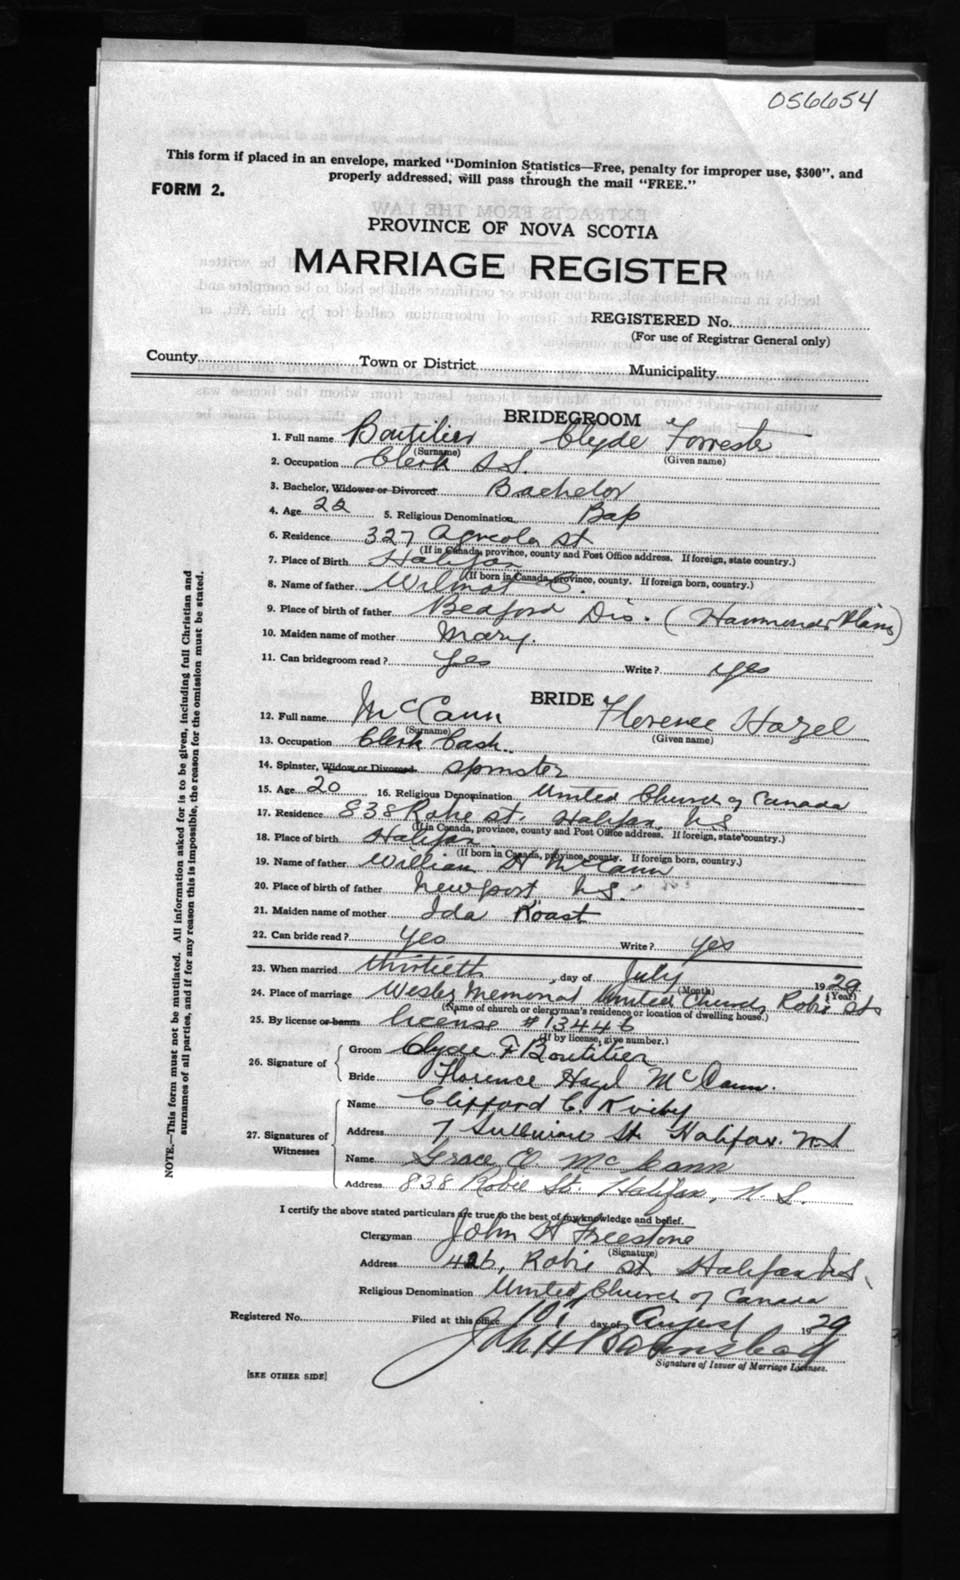 056654
This form if placed in an envelope, marked "Dominion Statistics—Free, penalty for improper use, $300", and
properly addressed, will pass through the mail "FREE."
FORM 2.
PROVINCE OF NOVA SCOTIA
MARRIAGE REGISTER
REGISTERED No.
(For use of Registrar General only)
County Town or District Municipality
BRIDEGROOM
1. Full name Boutilier Clyde Forrester
(Surname) (Given name)
2. Occupation Clerk S.S.
3. Bachelor, Widower or Divorced Bachelor
4. Age 22 5. Religious Denomination Bap
6. Residence 327 Agricola St
(If in Canada, province, county and Post Office address. If foreign, state country.)
7. Place of Birth Halifax
(If born in Canada, province, county. If foreign born, country.)
8. Name of father Wilmot C.
9. Place of birth of father Bedford Dis. (Hammonds Plains)
10. Maiden name of mother Mary.
11. Can bridegroom read? Yes Write? yes
BRIDE
12. Full name McCann Florence Hazel
(Surname) (Given name)
13. Occupation Clerk Cash.
14. Spinster, Widow or Divorced Spinster
15. Age 20 16. Religious Denomination United Church of Canada
17. Residence 838 Robie St. Halifax NS
(If in Canada, province, county and Post Office address. If foreign, state country.)
18. Place of birth Halifax
(If born in Canada, province, county. If foreign born, country.)
19. Name of father William H McCann
20. Place of birth of father Newport N.S.
21. Maiden name of mother Ida Roast
22. Can bride read? Yes Write? yes
23. When married thirtieth day of July 1929
(Month) (Year)
24. Place of marriage Wesley Memorial United Church Robie St
(Name of church or clergyman's residence or location of dwelling house.)
25. By license or banns license #13446
(If by license, give number.)
26. Signature of Groom Clyde F Boutilier
Bride Florence Hazel McCann.
27. Signatures of Witnesses
Name Clifford C.
Address 7 St. Halifax. N.S
Name Grace McCann
Address 838 Robie St. Halifax, N.S.
I certify the above stated particulars are true to the best of my knowledge and belief.
Clergyman John H Freestone
(Signature)
Address 426, Robie St Halifax N.S.
Religious Denomination United Church of Canada
Registered No. Filed at this office 10 day of August 1929
John H
Signature of Issuer of Marriage Licenses.
[SEE OTHER SIDE]
NOTE.—This form must not be mutilated. All information asked for is to be given, including full Christian and
surnames of all parties, and if for any reason this is impossible, the reason for the omission must be stated.